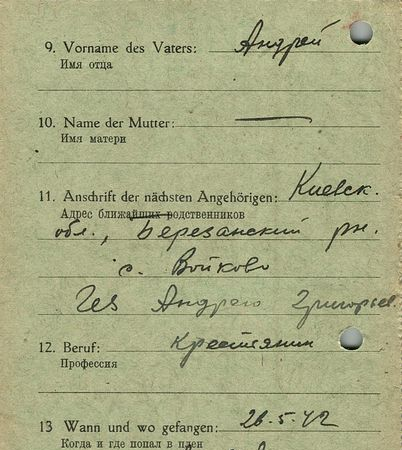 9. Vorname des Vaters: Андрей
Имя отца
10. Name der Mutter: —
Имя матери
11. Anschrift der nächsten Angehörigen: Киевск.
Адрес ближайших родственников
обл., Березанский рн.
с. Войково
Андрею Григорьев.
12. Beruf: крестянин
Профессия
13 Wann und wo gefangen: 26.5.42
Когда и где попал в плен